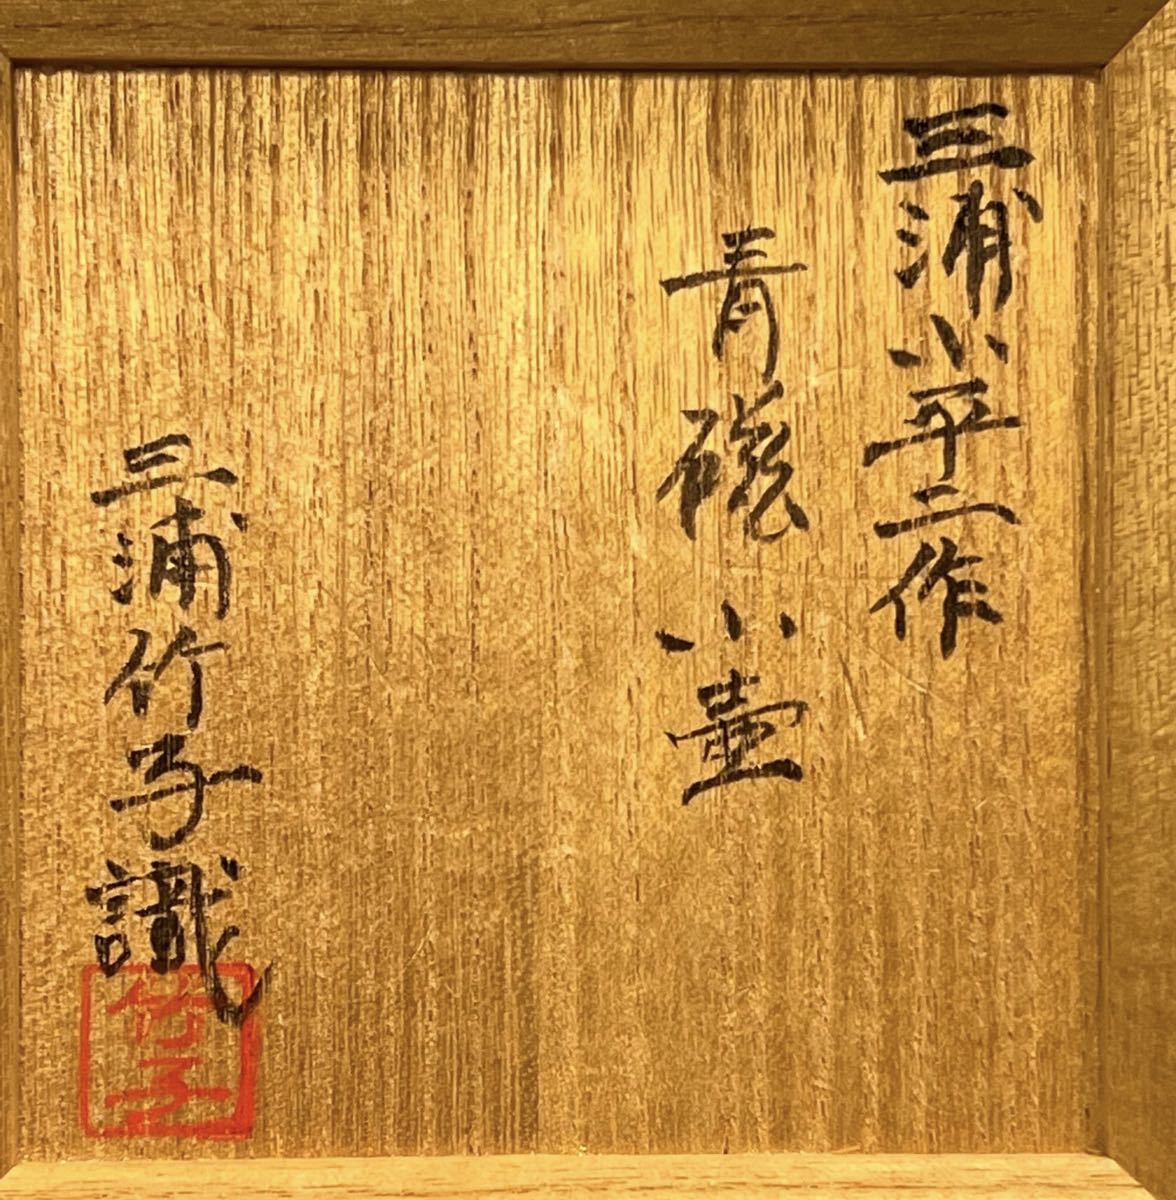 三浦小平二作
青磁小壷
三浦竹子識
竹子